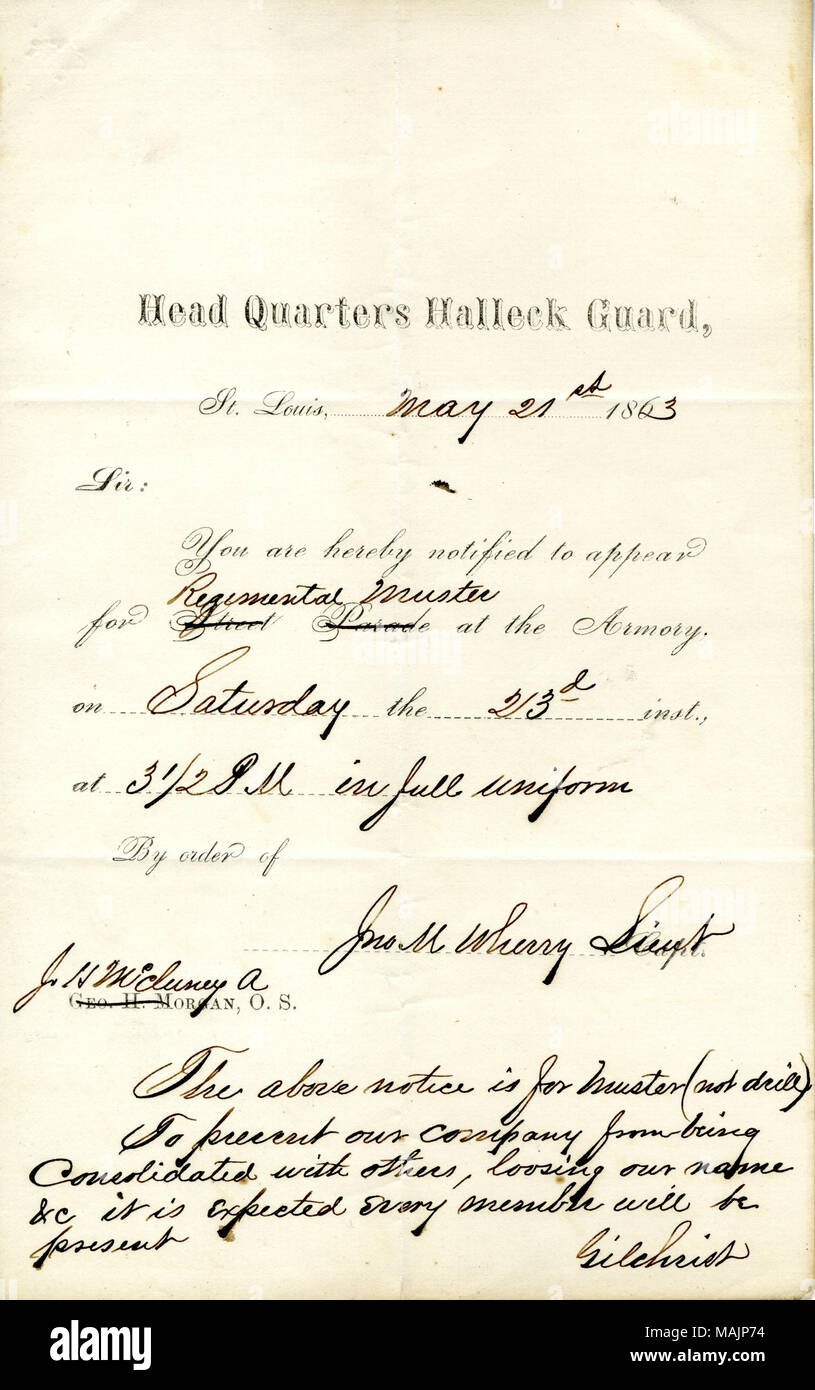 Head Quarters Halleck Guard,
St. Louis, May 21st 1863
Sir:
You are hereby notified to appear
Regimental Muster
for Street Parade at the Armory.
on Saturday the 23d inst.,
at 3 1/2 P M in full uniform
By order of
Jno M Wherry Lieut Capt.
J H McCluney A
Geo. H. Morgan, O. S.
The above notice is for Muster (not drill)
To prevent our company from being
Consolidated with others, loosing our name
&c it is expected every member will be
present
Gilchrist
alamy
Image ID: MAJP74
www.alamy.com